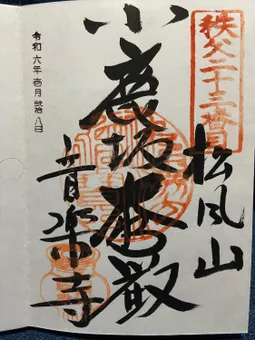 秩父二十三番
松風山
小鹿坂
音楽寺
令和六年壱月八日